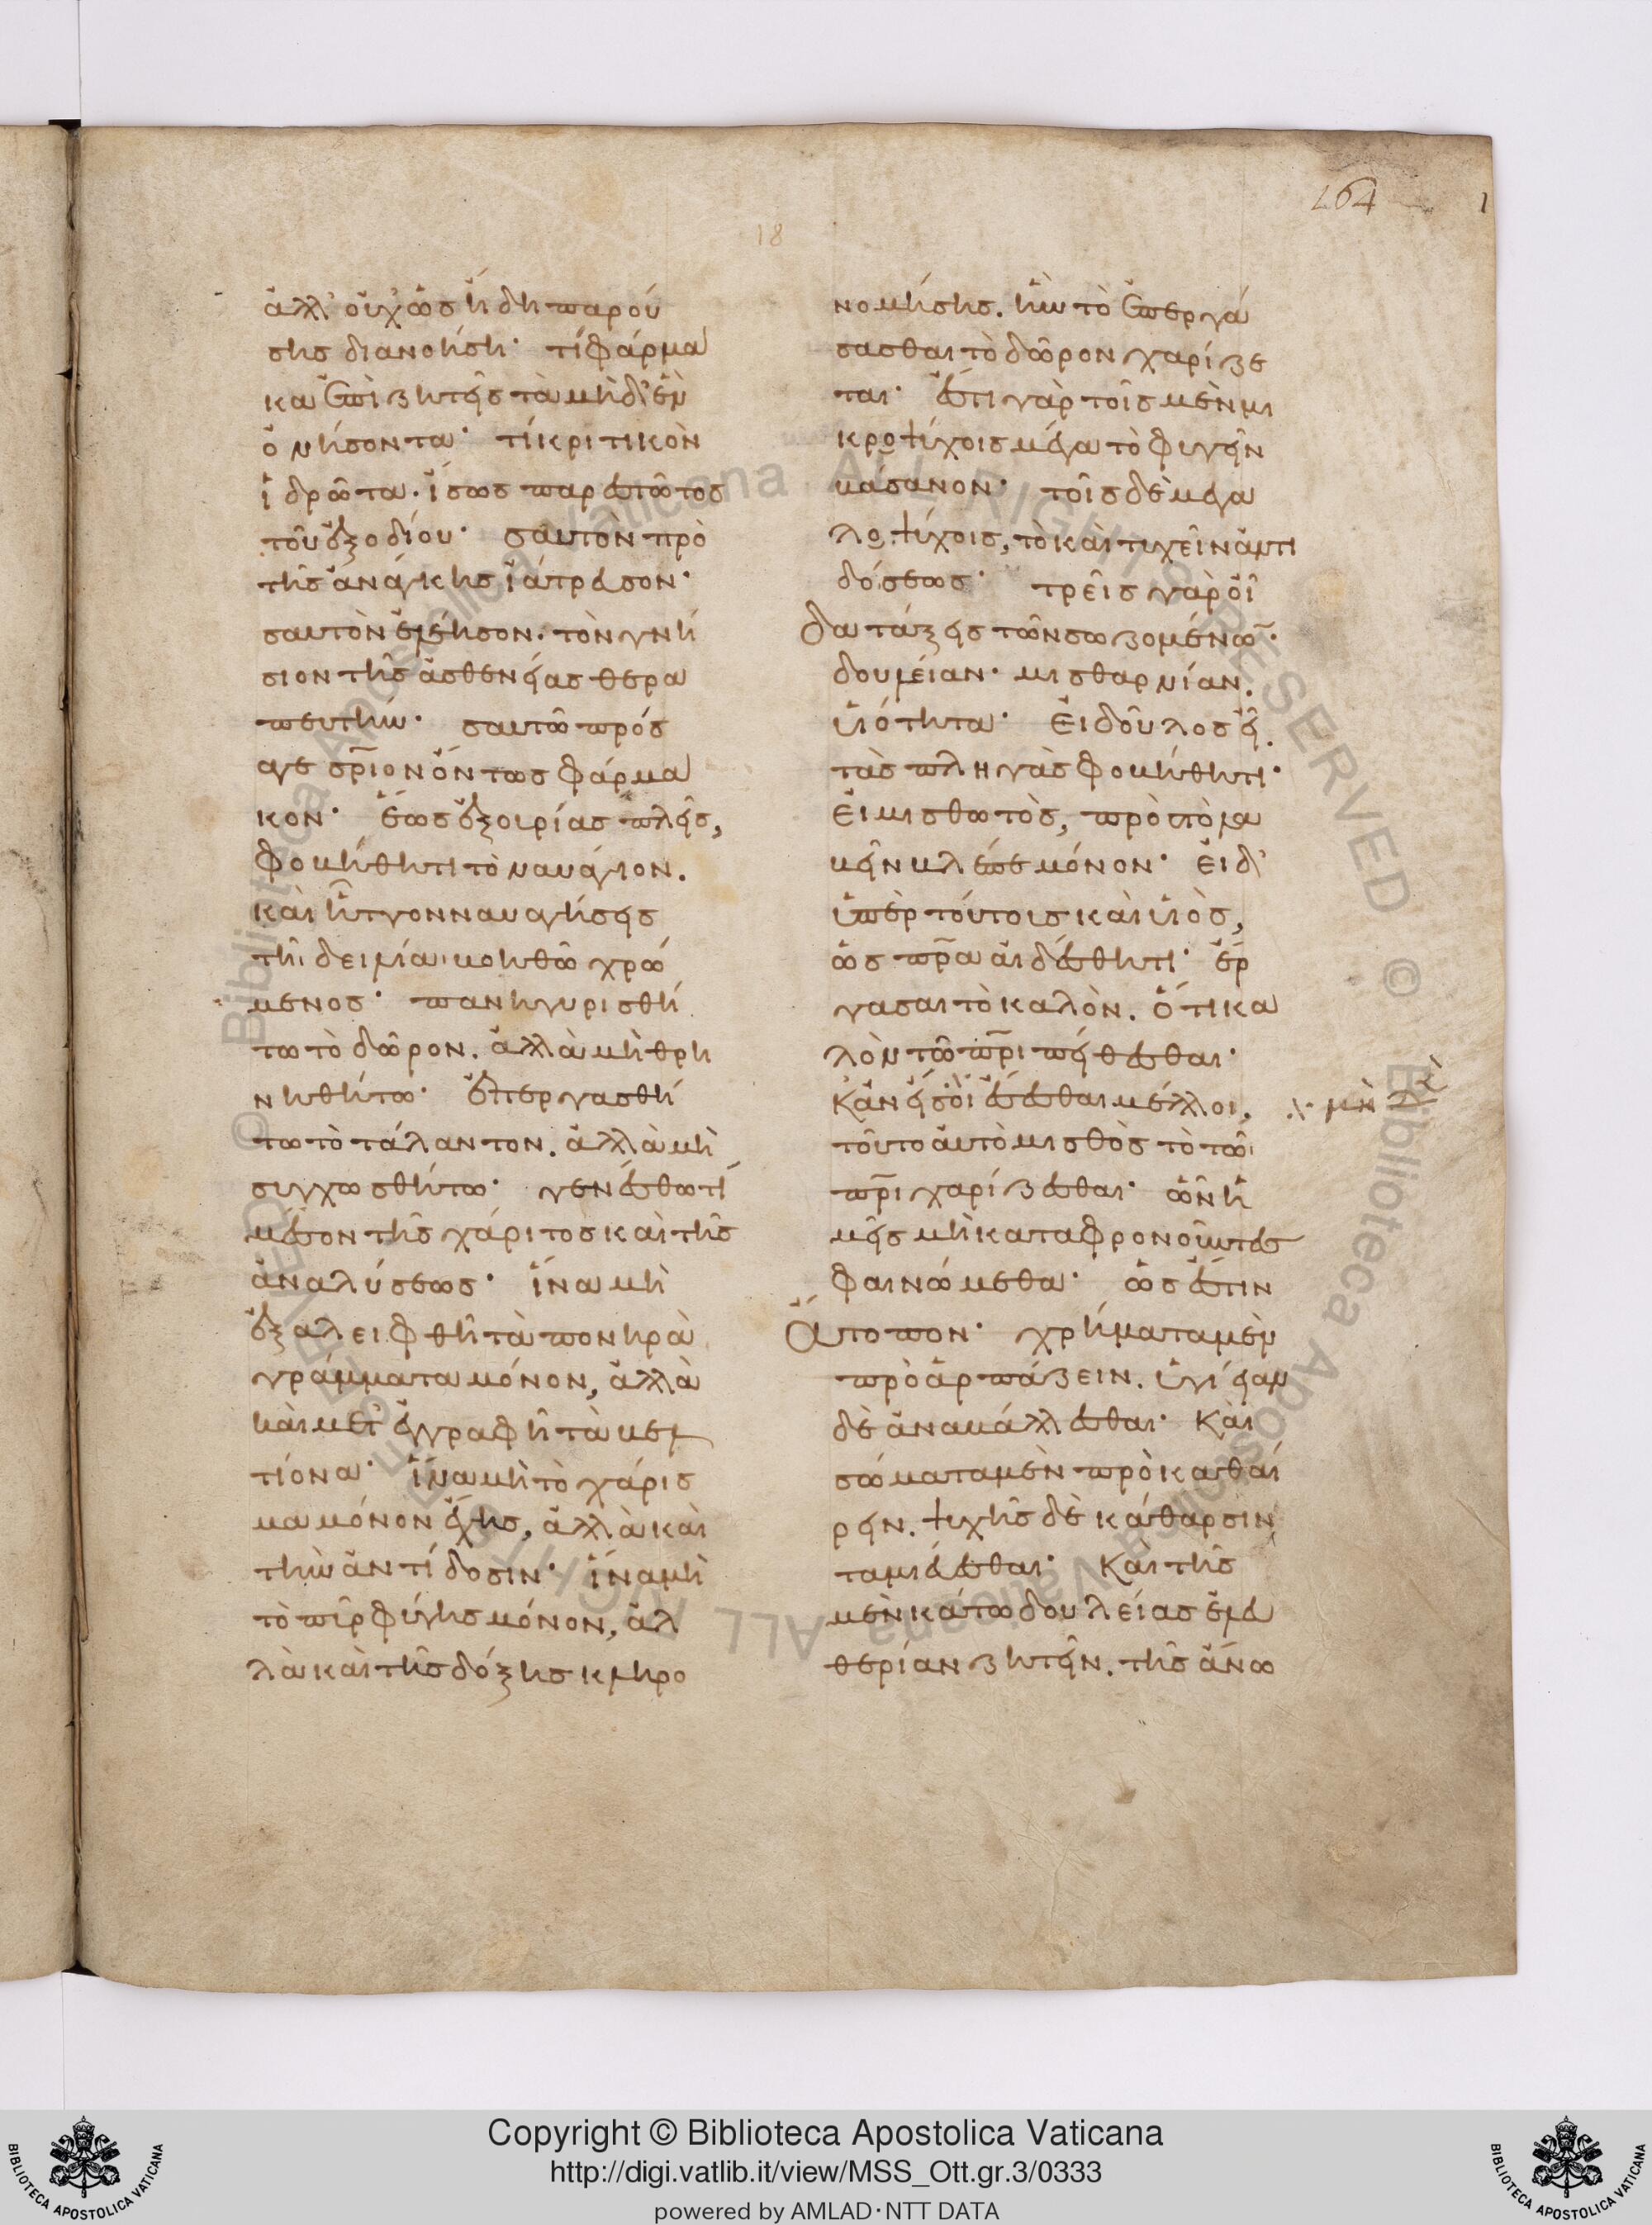 164
1
18
ἀλλ' οὐχ ὡς ἤδη παρού
σης διανοήση· τί φάρμα
κα ἐπιζητεῖς τὰ μηδὲν
ὀνήσοντα· τί κριτικὸν
ἱδρῶτα. ἴσως παρεστῶτος
τοῦ ἐξοδίου· σαυτὸν πρὸ
τῆς ἀνάγκης ἰάτρευσον·
σαυτὸν ἐλέησον. τὸν γνή
σιον τῆς ἀσθενείας θερα
πευτήν· σαυτῶ πρόσ
αγε σ̅ρ̅ιον ὄντως φάρμα
κον· ἕως ἐξ οὐρίας πλεῖς,
φοβήθητι τὸ ναυάγιον.
καὶ ἧττον ναυαγήσεις
τῆ δειλία βοηθῶ χρώ
μενος· πανηγυρισθή
τω τὸ δῶρον. ἀλλὰ μὴ θρη
νηθήτω· ἐπεργασθή
τω τὸ τάλαντον. ἀλλὰ μὴ
συγχωσθήτω· γενέσθω τί
μέσον τῆς χάριτος καὶ τῆς
ἀναλύσεως· ἵνα μὴ
ἐξαλειφθῆ τὰ πονηρὰ
γράμματα μόνον, ἀλλὰ
καὶ μετεγγραφῆ τὰ βελ
τίονα· ἵνα μὴ τὸ χάρισ
μα μόνον ἔχης, ἀλλὰ καὶ
τὴν ἀντίδοσιν· ἵνα μὴ
τὸ πῦρ φύγης μόνον, ἀλ
λὰ καὶ τῆς δόξης κληρο
νομήσης. ἣν τὸ ἐπεργά
σασθαι τὸ δῶρον χαρίζε
ται· ἔστι γὰρ τοῖς μὲν μι
κροψύχοις μέγα τὸ φυγεῖν
βάσανον· τοῖς δὲ μεγα
λοψύχοις, τὸ καὶ τυχεῖν ἀντι
δόσεως· τρεῖς γὰρ οἶ
δα τάξεις τῶν σωζομένω̅·
δουλείαν· μισθαρνίαν.
υἱότητα· Εἰ δοῦλος εἶ.
τὰς πληγὰς φοβήθητι·
Εἰ μισθωτὸς, πρὸς τὸ λα
βεῖν βλέπε μόνον· εἰ δ'
ὑπὲρ τούτοις καὶ υἱὸς,
ὡς π̅ρ̅α αἰδέσθητι· ἔρ
γασαι τὸ καλὸν. ὅτι κα
λὸν τῶ π̅ρ̅ι πείθεσθαι·
Κἂν εἴ σοι ἔσεσθαι μέλλοι,
μὴ δὲν
τοῦτο αὐτὸ μισθὸς τὸ τῶ
π̅ρ̅ι χαρίζεσθαι· ὧν ἡ
μεῖς μὴ καταφρονοῦντες
φαινώμεθα· ὡς ἔστιν
Ἄτοπον· χρήματα μὲν
προαρπάζειν. ὑγίειαν
δὲ ἀναβάλλεσθαι· Καὶ
σώματα μὲν προκαθαί
ρειν. ψυχῆς δὲ κάθαρσιν
ταμιεύεσθαι· Καὶ τῆς
μὲν κάτω δουλείας ἐλευ
θερίαν ζητεῖν. τῆς ἄνω
Copyright © Biblioteca Apostolica Vaticana
http://digi.vatlib.it/view/MSS_Ott.gr.3/0333
powered by AMLAD·NTT DATA